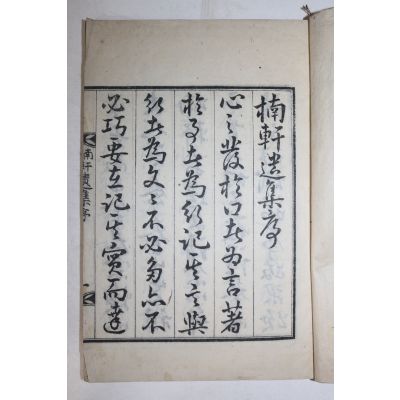 楠軒遺集序
心之發於口者為言著
於事者為行記其言與
行者為文〻不必多亦不
必巧要在記其實而達
楠軒遺集序 一